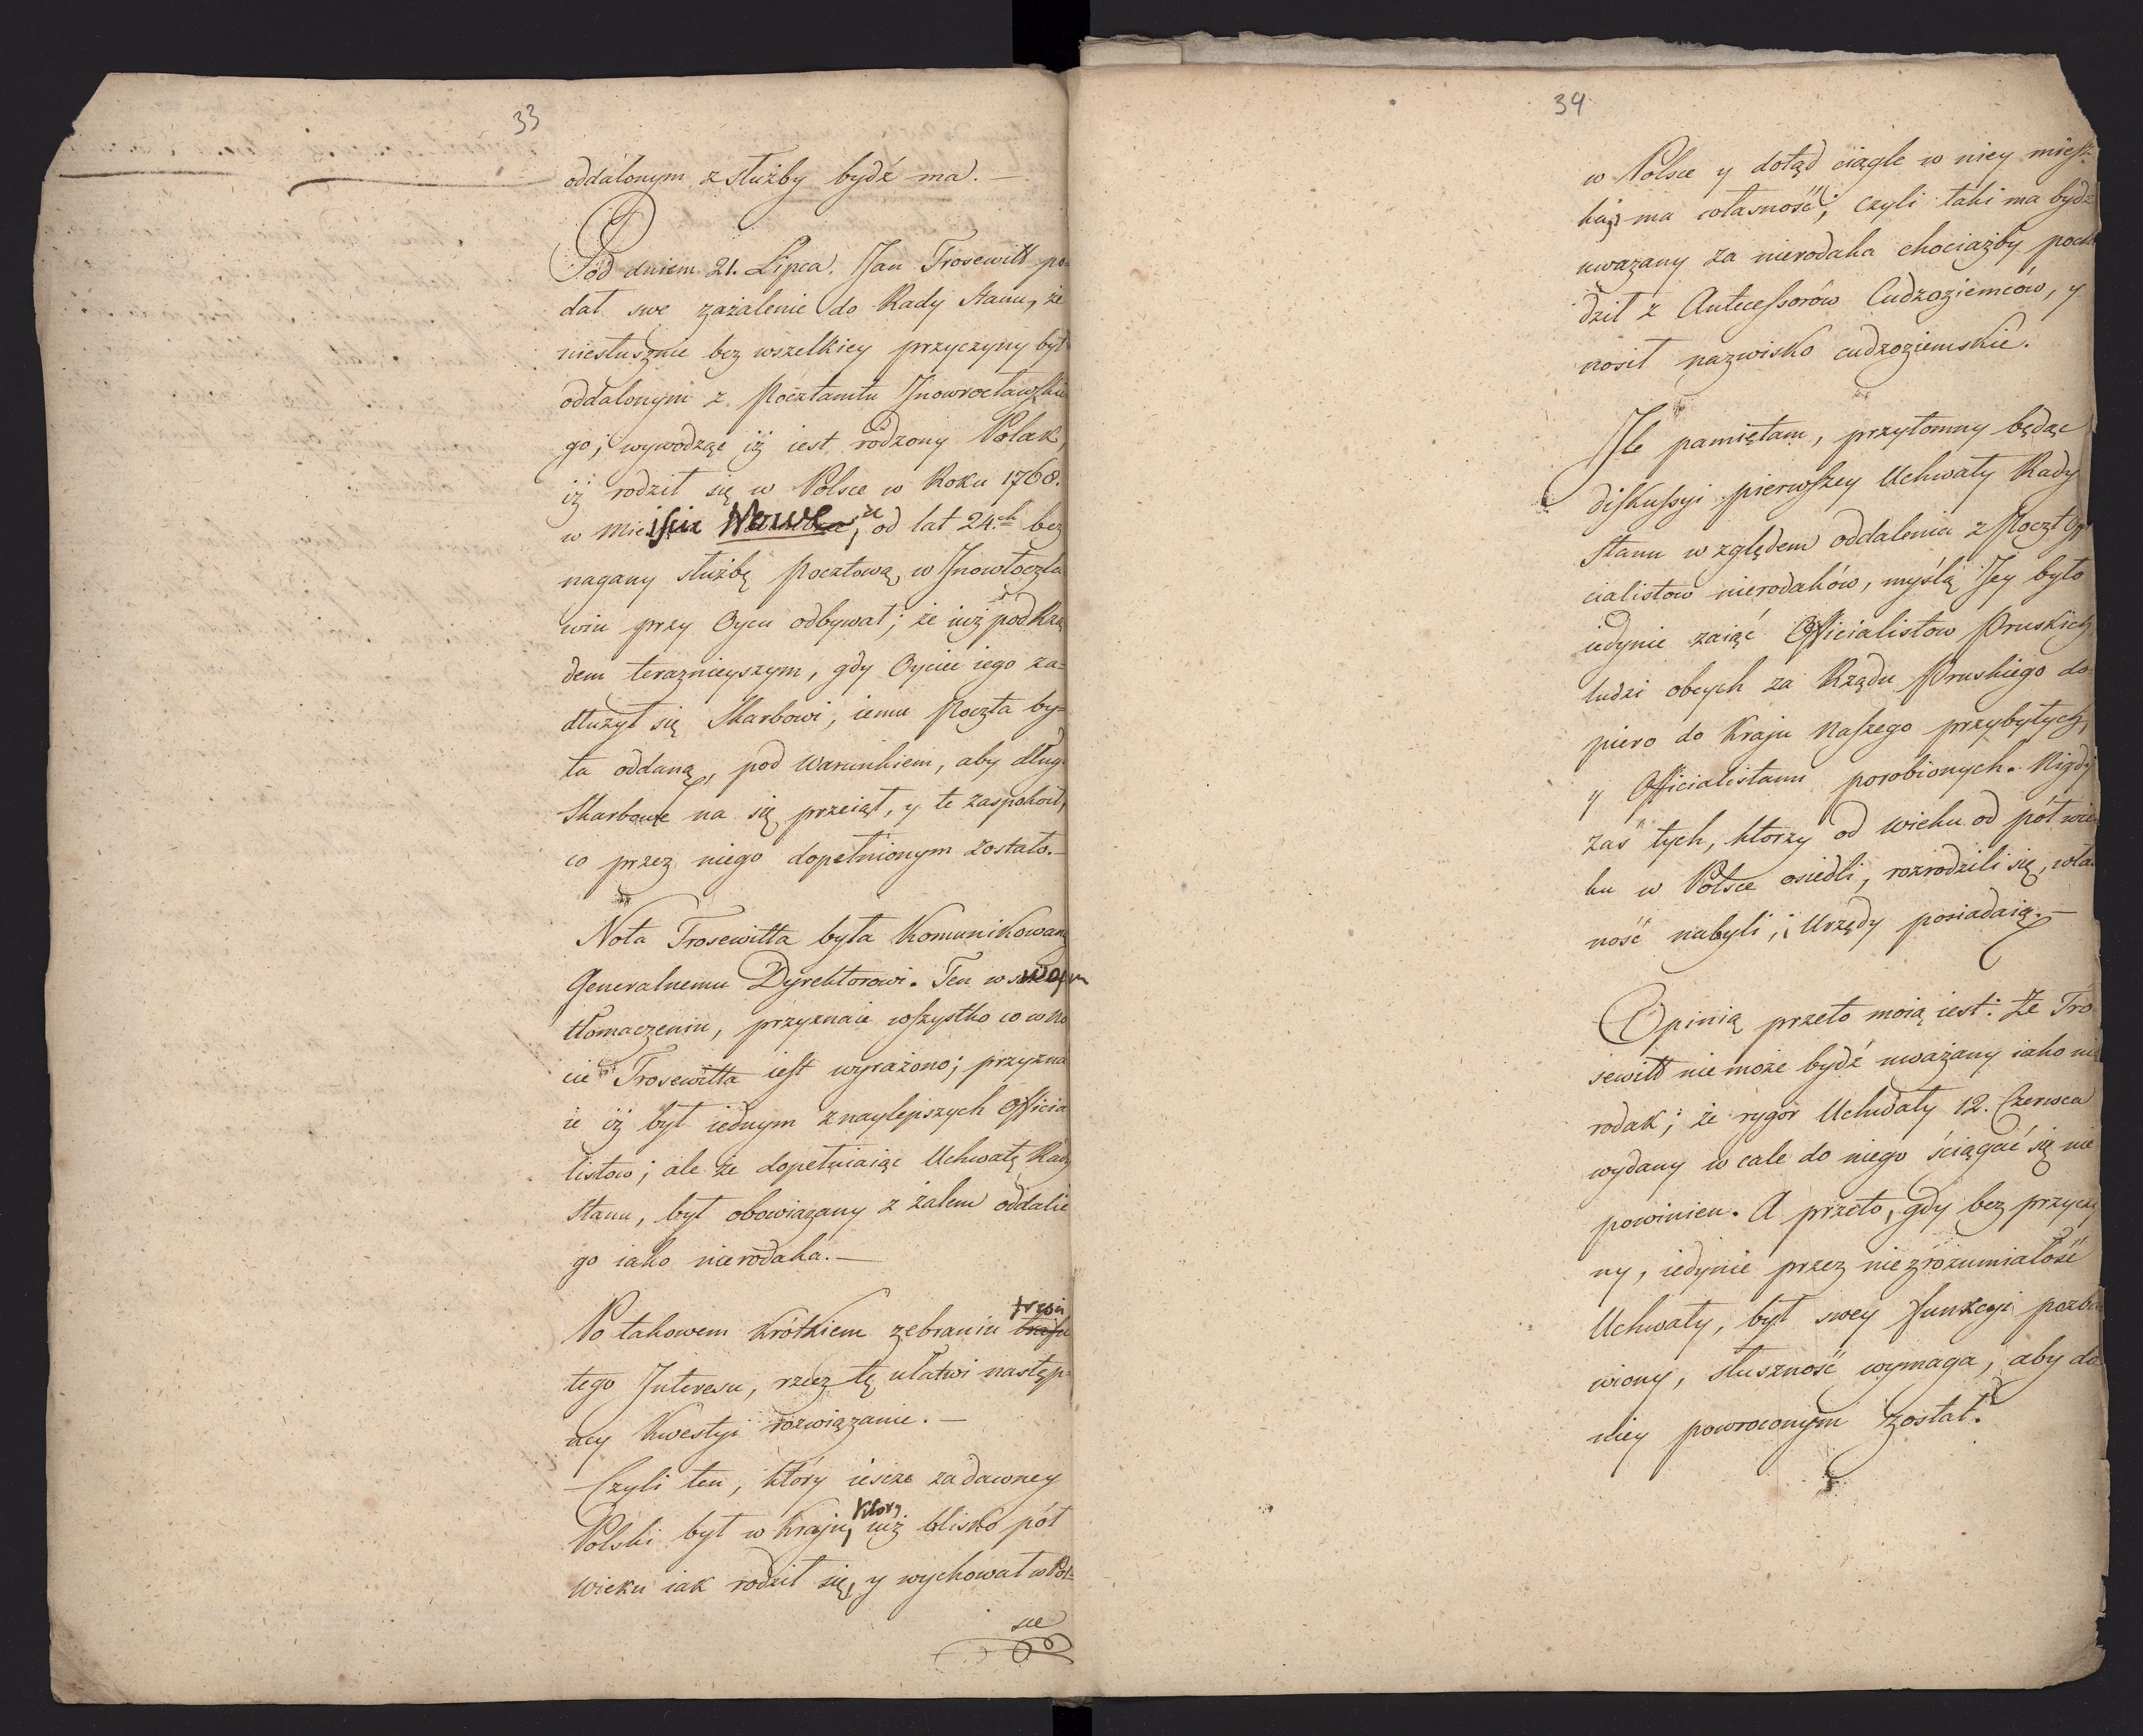 33
oddalonym z służby bydź ma. —
Pod dniem 21. Lipca. Jan Trosewitt po-
dał swe zażalenie do Rady Stanu, że
niesłusznie bez wszelkiey przyczyny był
oddalonym z Pocztamtu Jnowrocławskie
go; wywodząc iż iest rodzony Polak,
iż rodził się w Polsce w Roku 1768.
w Mieyscu Nowe, że od lat 24.ch bez
nagany służbę Pocztową, w Jnowłocła
wiu przy Oycu odbywał; że iuż pod Rzą
dem teraznieyszym, gdy Oyciec iego za-
dłużył się Skarbowi, iemu Poczta by-
ła oddaną, pod warunkiem, aby dług
Skarbowe na się przeiął, y te zaspokoił,
co przez niego dopełnionym zostało. —
Nota Trosewitta była Komunikowaną
Generalnemu Dyrektorowi. Ten w swoym
tłomaczeniu, przyznaie wszystko co w No
cie Trosewitta iest wyrażono; przyzna
ie iż był iednym z naylepszych Officia
listow; ale że dopełniaiąc Uchwałę Rady
Stanu, był obowiązany z żalem oddalić
go iako nierodaka. —
Po takowem krótkiem zebraniu treści
tego Interesu, rzecz tę ułatwi następ-
ney Kwestyi rozwiązanie. —
Czyli ten, który ieszcze za dawney
Polski był w Kraju, który iuż blisko pół
wieku iak rodził się, y wychował w Pol-
sce
34
w Polsce y dotąd ciągle w niey miesz-
kaiąc ma własność; czyli taki ma bydź
uważany za nierodaka chociażby pocho
dził z Antecessorów Cudzoziemców, y
nosił nazwisko cudzoziemskie.
Jle pamiętam, przytomny będąc
diskussyi pierwszey Uchwały Rady
Stanu względem oddalenia z Poczt Offi
cialistow nierodaków, myślą Jey było
iedynie zaiąć Officialistow Pruskich,
ludzi obcych za Rządu Pruskiego do-
piero do Kraju Naszego przybyłych,
y Officialistami porobionych. Nigdy
zaś tych, ktorzy od wieku od pół wie
ku w Polsce osiedli, rozrodzili się, włas
ność nabyli, i Urzędy posiadaią. —
Opinią przeto moią iest: Że Tro
sewitt nie może bydź uważany iako nie
rodak; że rygor Uchwały 12. Czerwca
wydany wcale do niego ściągać się nie
powinien. A przeto, gdy bez przyczy
ny, iedynie przez niezrozumiałość
Uchwały, był swey funkcyi pozba
wiony, słuszność wymaga, aby do
niey powroconym został.